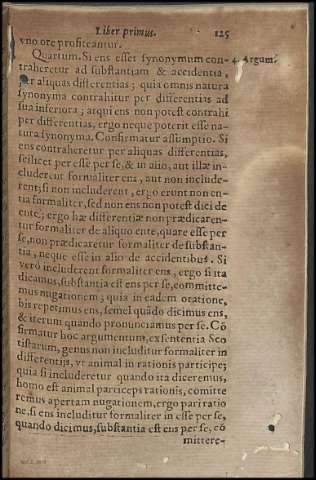 Liber primus. 125
vno ore profiteantur.
Quartum. Si ens esset synonymum con- 4. Argum?
traheretur ad substantiam & accidentia,
per aliquas differentias; quia omnis natura
synonyma contrahitur per differentias ad
sua inferiora; atqui ens non potest contrahi
per differentias, ergo neque poterit esse na-
tura synonyma. Confirmatur assumptio. Si
ens contraheretur per aliquas differentias,
scilicet per esse per se, & in alio, aut illæ in-
cluderent formaliter ens, aut non include-
rent; si non includerent, ergo erunt non en-
tia formaliter, sed non ens non potest dici de
ente; ergo hæ differentiæ non prædicaren-
tur formaliter de aliquo ente, quare esse per
se, non prædicaretur formaliter de substan-
tia, neque esse in alio de accidentibus. Si
verò includerent formaliter ens, ergo si ita
dicamus, substantia est ens per se, committe-
mus nugationem; quia in eadem oratione,
bis repetimus ens, semel quãdo dicimus ens,
& iterum quando pronunciamus per se. Cõ
firmatur hoc argumentum, ex sententia Sco
tistarum, genus non includitur formaliter in
differentijs, vt animal in rationis participe;
quia si includeretur quando ita diceremus,
homo est animal particeps rationis, comitte
remus apertam nugationem, ergo pari ratio
ne, si ens includitur formaliter in esse per se,
quando dicimus, substantia est ens per se, cõ
mittere-